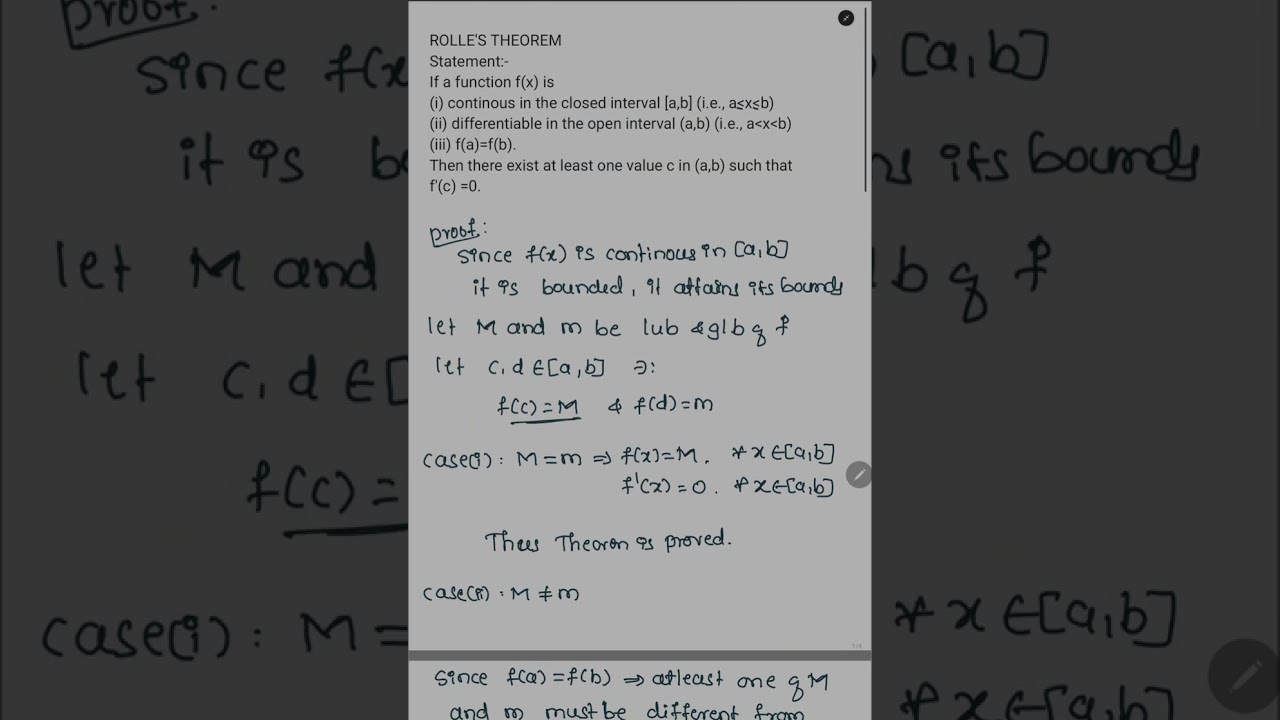 ROLLE'S THEOREM
Statement:-
If a function f(x) is
(i) continous in the closed interval [a,b] (i.e., a≤x≤b)
(ii) differentiable in the open interval (a,b) (i.e., a<x<b)
(iii) f(a)=f(b).
Then there exist at least one value c in (a,b) such that
f'(c) =0.
proof:
since f(x) is continous in [a,b]
it is bounded, it attains its bounds
let M and m be lub & glb of f
let c,d ∈ [a,b] ∋:
f(c) = M & f(d) = m
case(i): M = m ⇒ f(x) = M. ∀ x ∈ [a,b]
f'(x) = 0. ∀ x ∈ [a,b]
Thus Theorem is proved.
case(ii): M ≠ m
1/4
since f(a) = f(b) ⇒ atleast one of M
and m must be different from